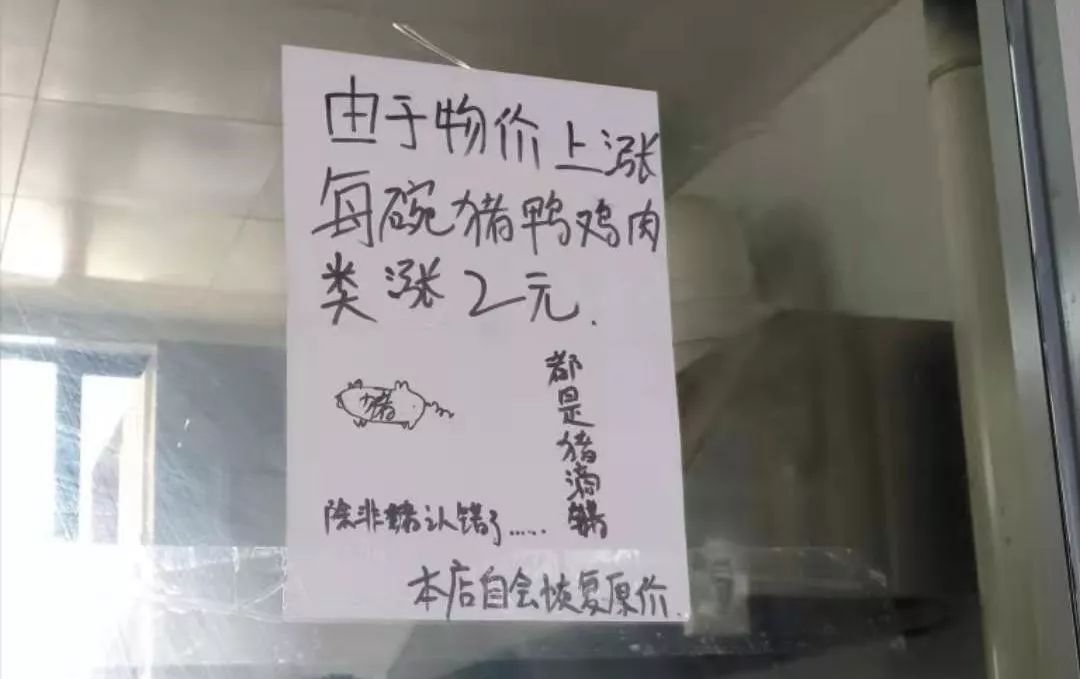 由于物价上涨
每碗猪鸭鸡肉
类涨2元.
猪
都是猪滴错
除非猪认错了......
本店自会恢复原价.